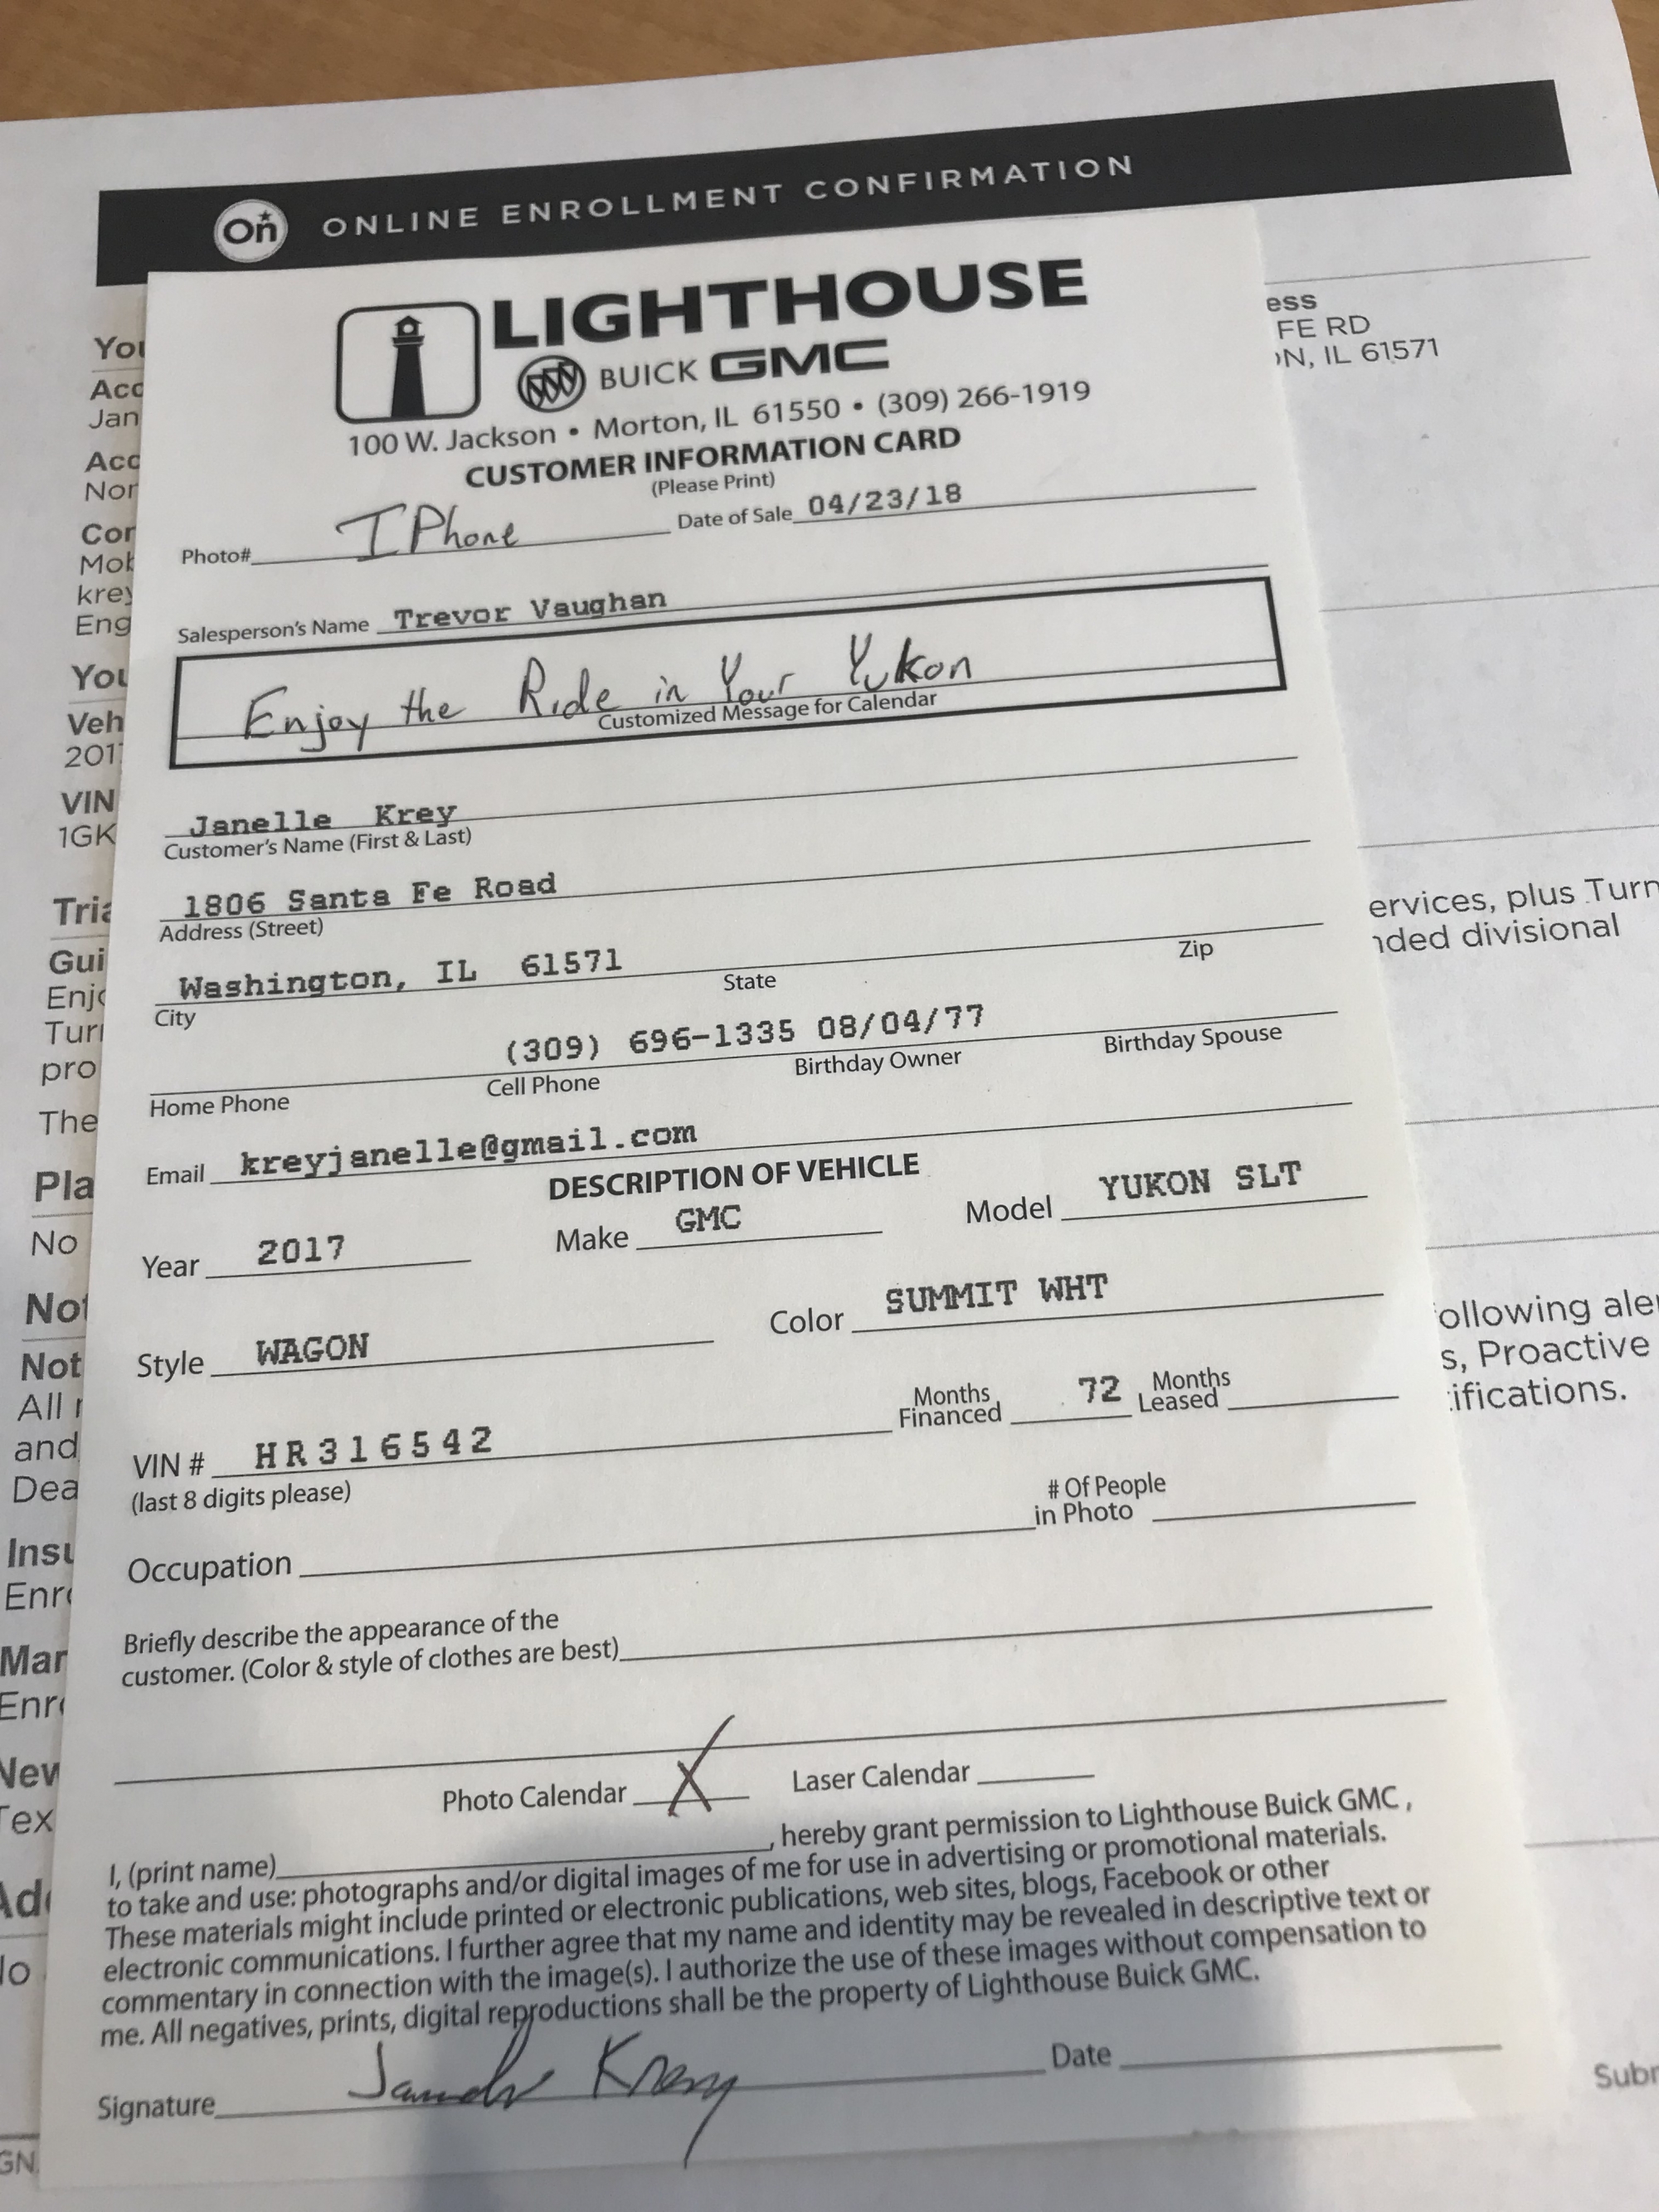 On ONLINE ENROLLMENT CONFIRMATION
LIGHTHOUSE
BUICK GMC
100 W. Jackson • Morton, IL 61550 • (309) 266-1919
CUSTOMER INFORMATION CARD
(Please Print)
Photo# IPhone Date of Sale 04/23/18
Salesperson's Name Trevor Vaughan
Enjoy the Ride in Your Yukon
Customized Message for Calendar
Janelle Krey
Customer's Name (First & Last)
1806 Santa Fe Road
Address (Street)
Washington, IL 61571
City State Zip
(309) 696-1335 08/04/77
Home Phone Cell Phone Birthday Owner Birthday Spouse
Email kreyjanelle@gmail.com
DESCRIPTION OF VEHICLE
Year 2017 Make GMC Model YUKON SLT
Style WAGON Color SUMMIT WHT
VIN # HR316542 Months Financed 72 Months Leased
(last 8 digits please)
Occupation # Of People in Photo
Briefly describe the appearance of the
customer. (Color & style of clothes are best)
Photo Calendar X Laser Calendar
I, (print name) , hereby grant permission to Lighthouse Buick GMC ,
to take and use: photographs and/or digital images of me for use in advertising or promotional materials.
These materials might include printed or electronic publications, web sites, blogs, Facebook or other
electronic communications. I further agree that my name and identity may be revealed in descriptive text or
commentary in connection with the image(s). I authorize the use of these images without compensation to
me. All negatives, prints, digital reproductions shall be the property of Lighthouse Buick GMC.
Signature Janelle Krey Date
You
Acc
Jan
Acc
Nor
Cor
Mob
krey
Eng
You
Veh
2017
VIN
1GK
Tria
Gui
Enjo
Turn
pro
The
Pla
No
Not
Not
All
and
Dea
Insu
Enro
Mar
Enro
New
Tex
Add
No
GN
ess
FE RD
ON, IL 61571
ervices, plus Turn
nded divisional
ollowing aler
s, Proactive
ifications.
Subr